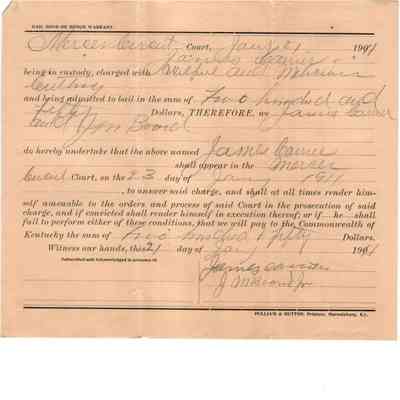 BAIL BOND OR BENCH WARRANT.
Mercer Circuit Court, Jany 21 1901
James Carrier
being in custody, charged with Wilful and Malicious
Cutting
and being admitted to bail in the sum of Two hundred and
fifty Dollars, THEREFORE, we James Carrier
and
do hereby undertake that the above named James Carrier
shall appear in the Mercer
Circuit Court, on the 23 day of Jany 1911
, to answer said charge, and shall at all times render him-
self amenable to the orders and process of said Court in the prosecution of said
charge, and if convicted shall render himself in execution thereof; or if he shall
fail to perform either of these conditions, that we will pay to the Commonwealth of
Kentucky the sum of Two hundred & fifty Dollars.
Witness our hands, this 21 day of Jany 1901
Subscribed and Acknowledged in presence of:
James Carrier
PULLIAM & HUTTON, Printers, Harrodsburg, Ky.